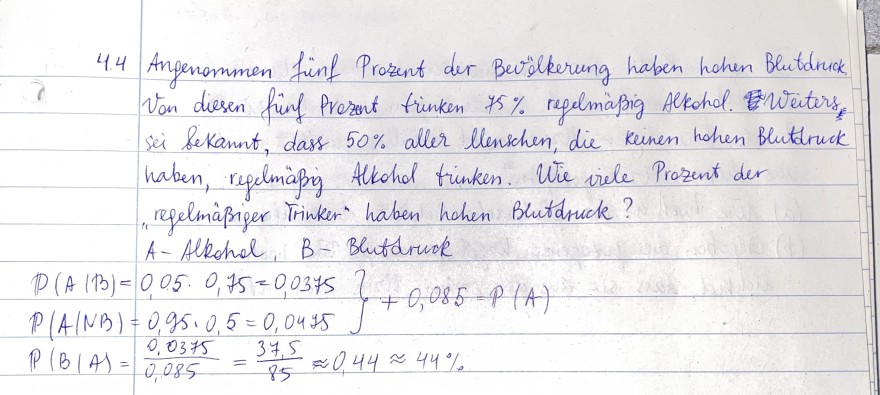 4.4 Angenommen fünf Prozent der Bevölkerung haben hohen Blutdruck.
Von diesen fünf Prozent trinken 75% regelmäßig Alkohol. Weiters,
sei bekannt, dass 50% aller Menschen, die keinen hohen Blutdruck
haben, regelmäßig Alkohol trinken. Wie viele Prozent der
„regelmäßiger Trinker“ haben hohen Blutdruck?
A - Alkohol, B - Blutdruck
P(A/B) = 0,05 · 0,75 = 0,0375
P(A/NB) = 0,95 · 0,5 = 0,0475 } + 0,085 = P(A)
P(B/A) = 0,0375/0,085 = 37,5/85 ≈ 0,44 ≈ 44%